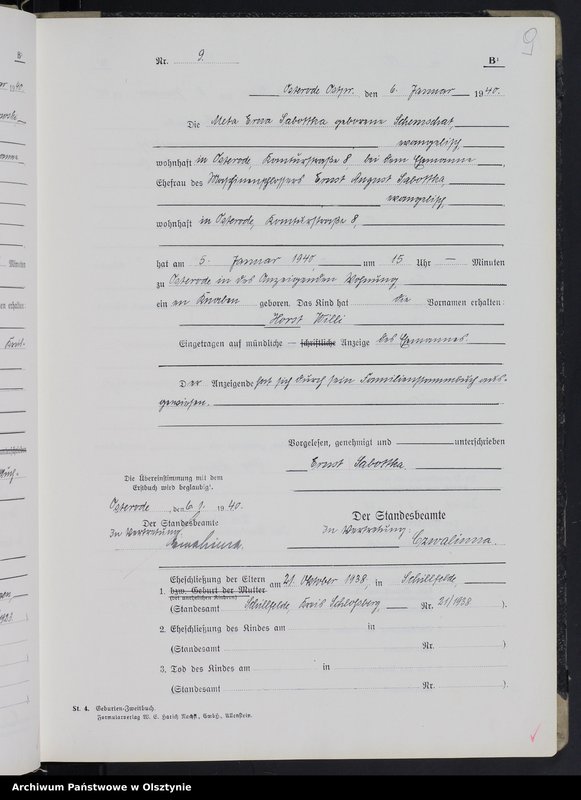 9
Nr. 9. B¹
Osterode Ostpr. den 6. Januar 1940.
Die Meta Erna Sabottka geborene Schemschat,
evangelisch,
wohnhaft in Osterode, Komturstraße 8 bei dem Ehemanne,
Ehefrau des Maschinenschlossers Ernst August Sabottka,
evangelisch,
wohnhaft in Osterode, Komturstraße 8,
hat am 5. Januar 1940 um 15 Uhr — Minuten
zu Osterode in des Anzeigenden Wohnung,
ein en Knaben geboren. Das Kind hat die Vornamen erhalten:
Horst Willi
Eingetragen auf mündliche — schriftliche Anzeige des Ehemannes.
Der Anzeigende hat sich durch sein Familienstammbuch aus-
gewiesen.
Vorgelesen, genehmigt und unterschrieben
Ernst Sabottka
Die Übereinstimmung mit dem
Erstbuch wird beglaubigt.
Osterode, den 6. 1. 1940.
Der Standesbeamte
In Vertretung
Der Standesbeamte
In Vertretung:
Czwalinna.
1. Eheschließung der Eltern am 21. Oktober 1938, in Schillfelde,
bzw. Geburt der Mutter
(bei unehelichen Kindern)
(Standesamt Schillfelde, Kreis Schloßberg, Nr. 21/1938).
2. Eheschließung des Kindes am in
(Standesamt Nr. )
3. Tod des Kindes am in
(Standesamt Nr. ).
St. 4. Geburten-Zweitbuch.
Formularverlag W. E. Harich Nachf., GmbH., Allenstein.
Archiwum Państwowe w Olsztynie